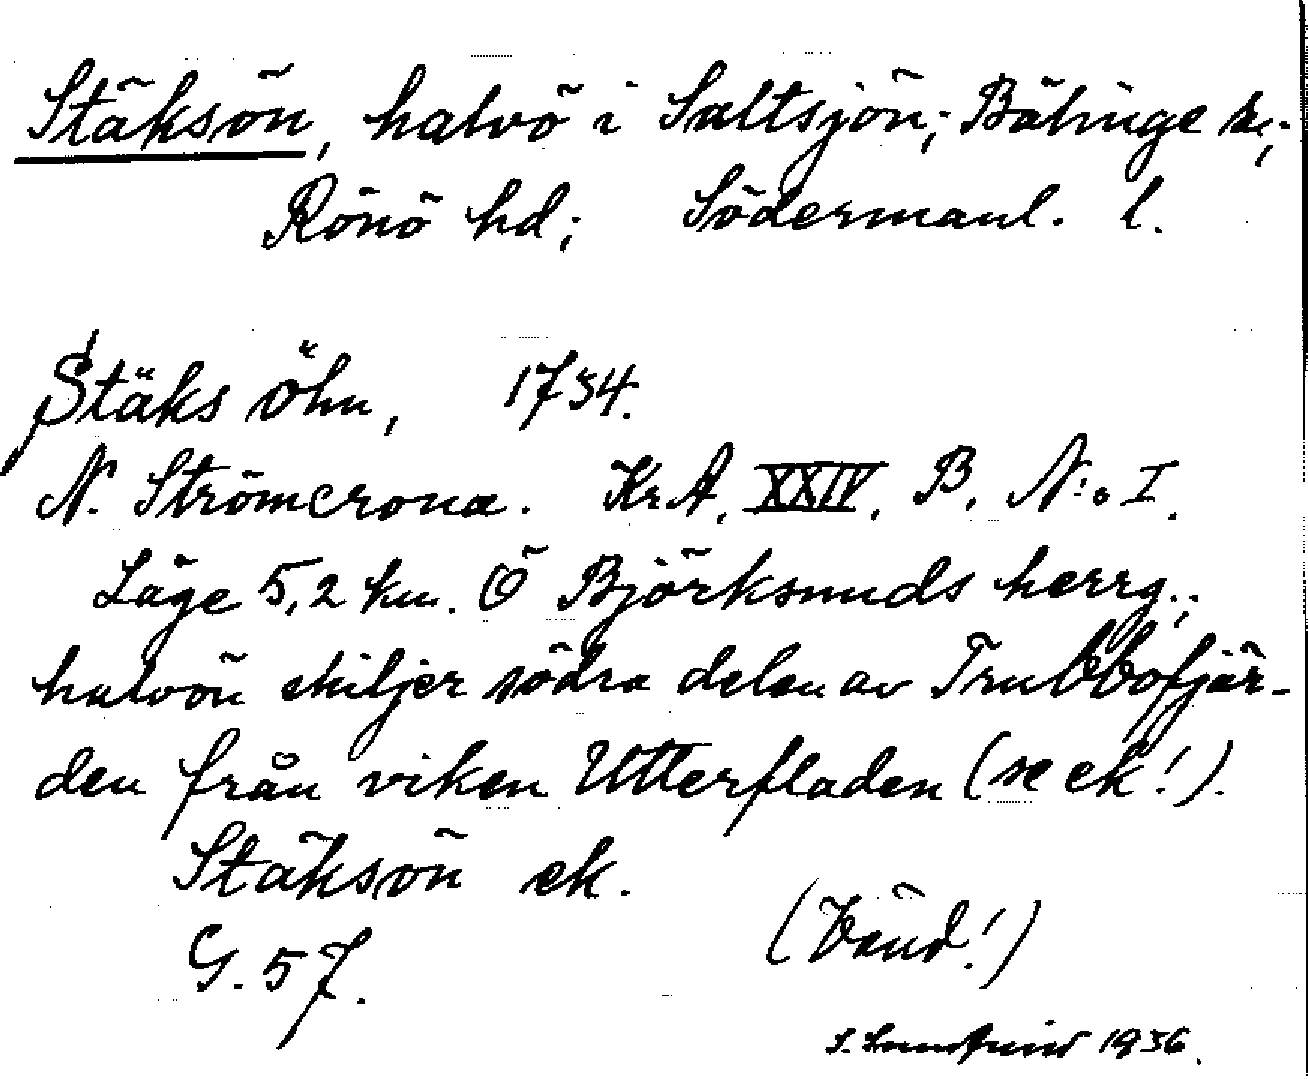 Stäksön, halvö i Saltsjön; Bälinge sn;
Rönö hd; Södermanl. l.
Stäks öhn, 1734.
N. Strömcrona. Kr.A. XXIV. B. N:o I.
Läge 5,2 km. Ö Björksunds herrg.;
halvön skiljer södra delen av Trubbofjär-
den från viken Utterfladen (se ek!).
Stäksön ek.
G. 57.
(Vänd!)
S. 1936.